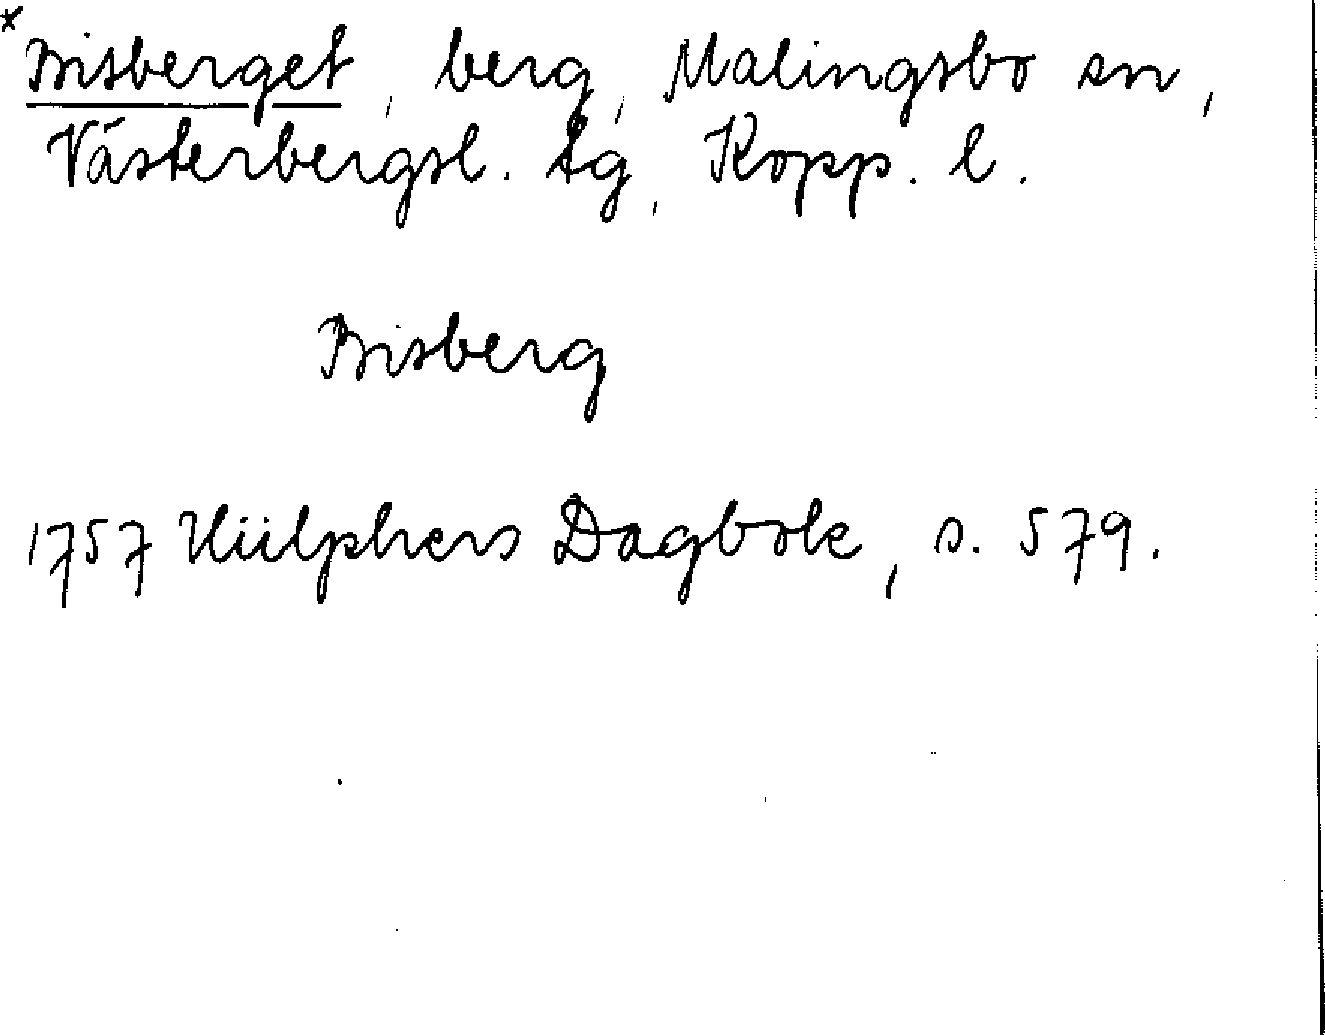 * Bisberget, berg, Malingsbo sn,
Västerbergsl. tg, Kopp. l.
Bisberg
1757 Hülphers Dagbok, s. 579.